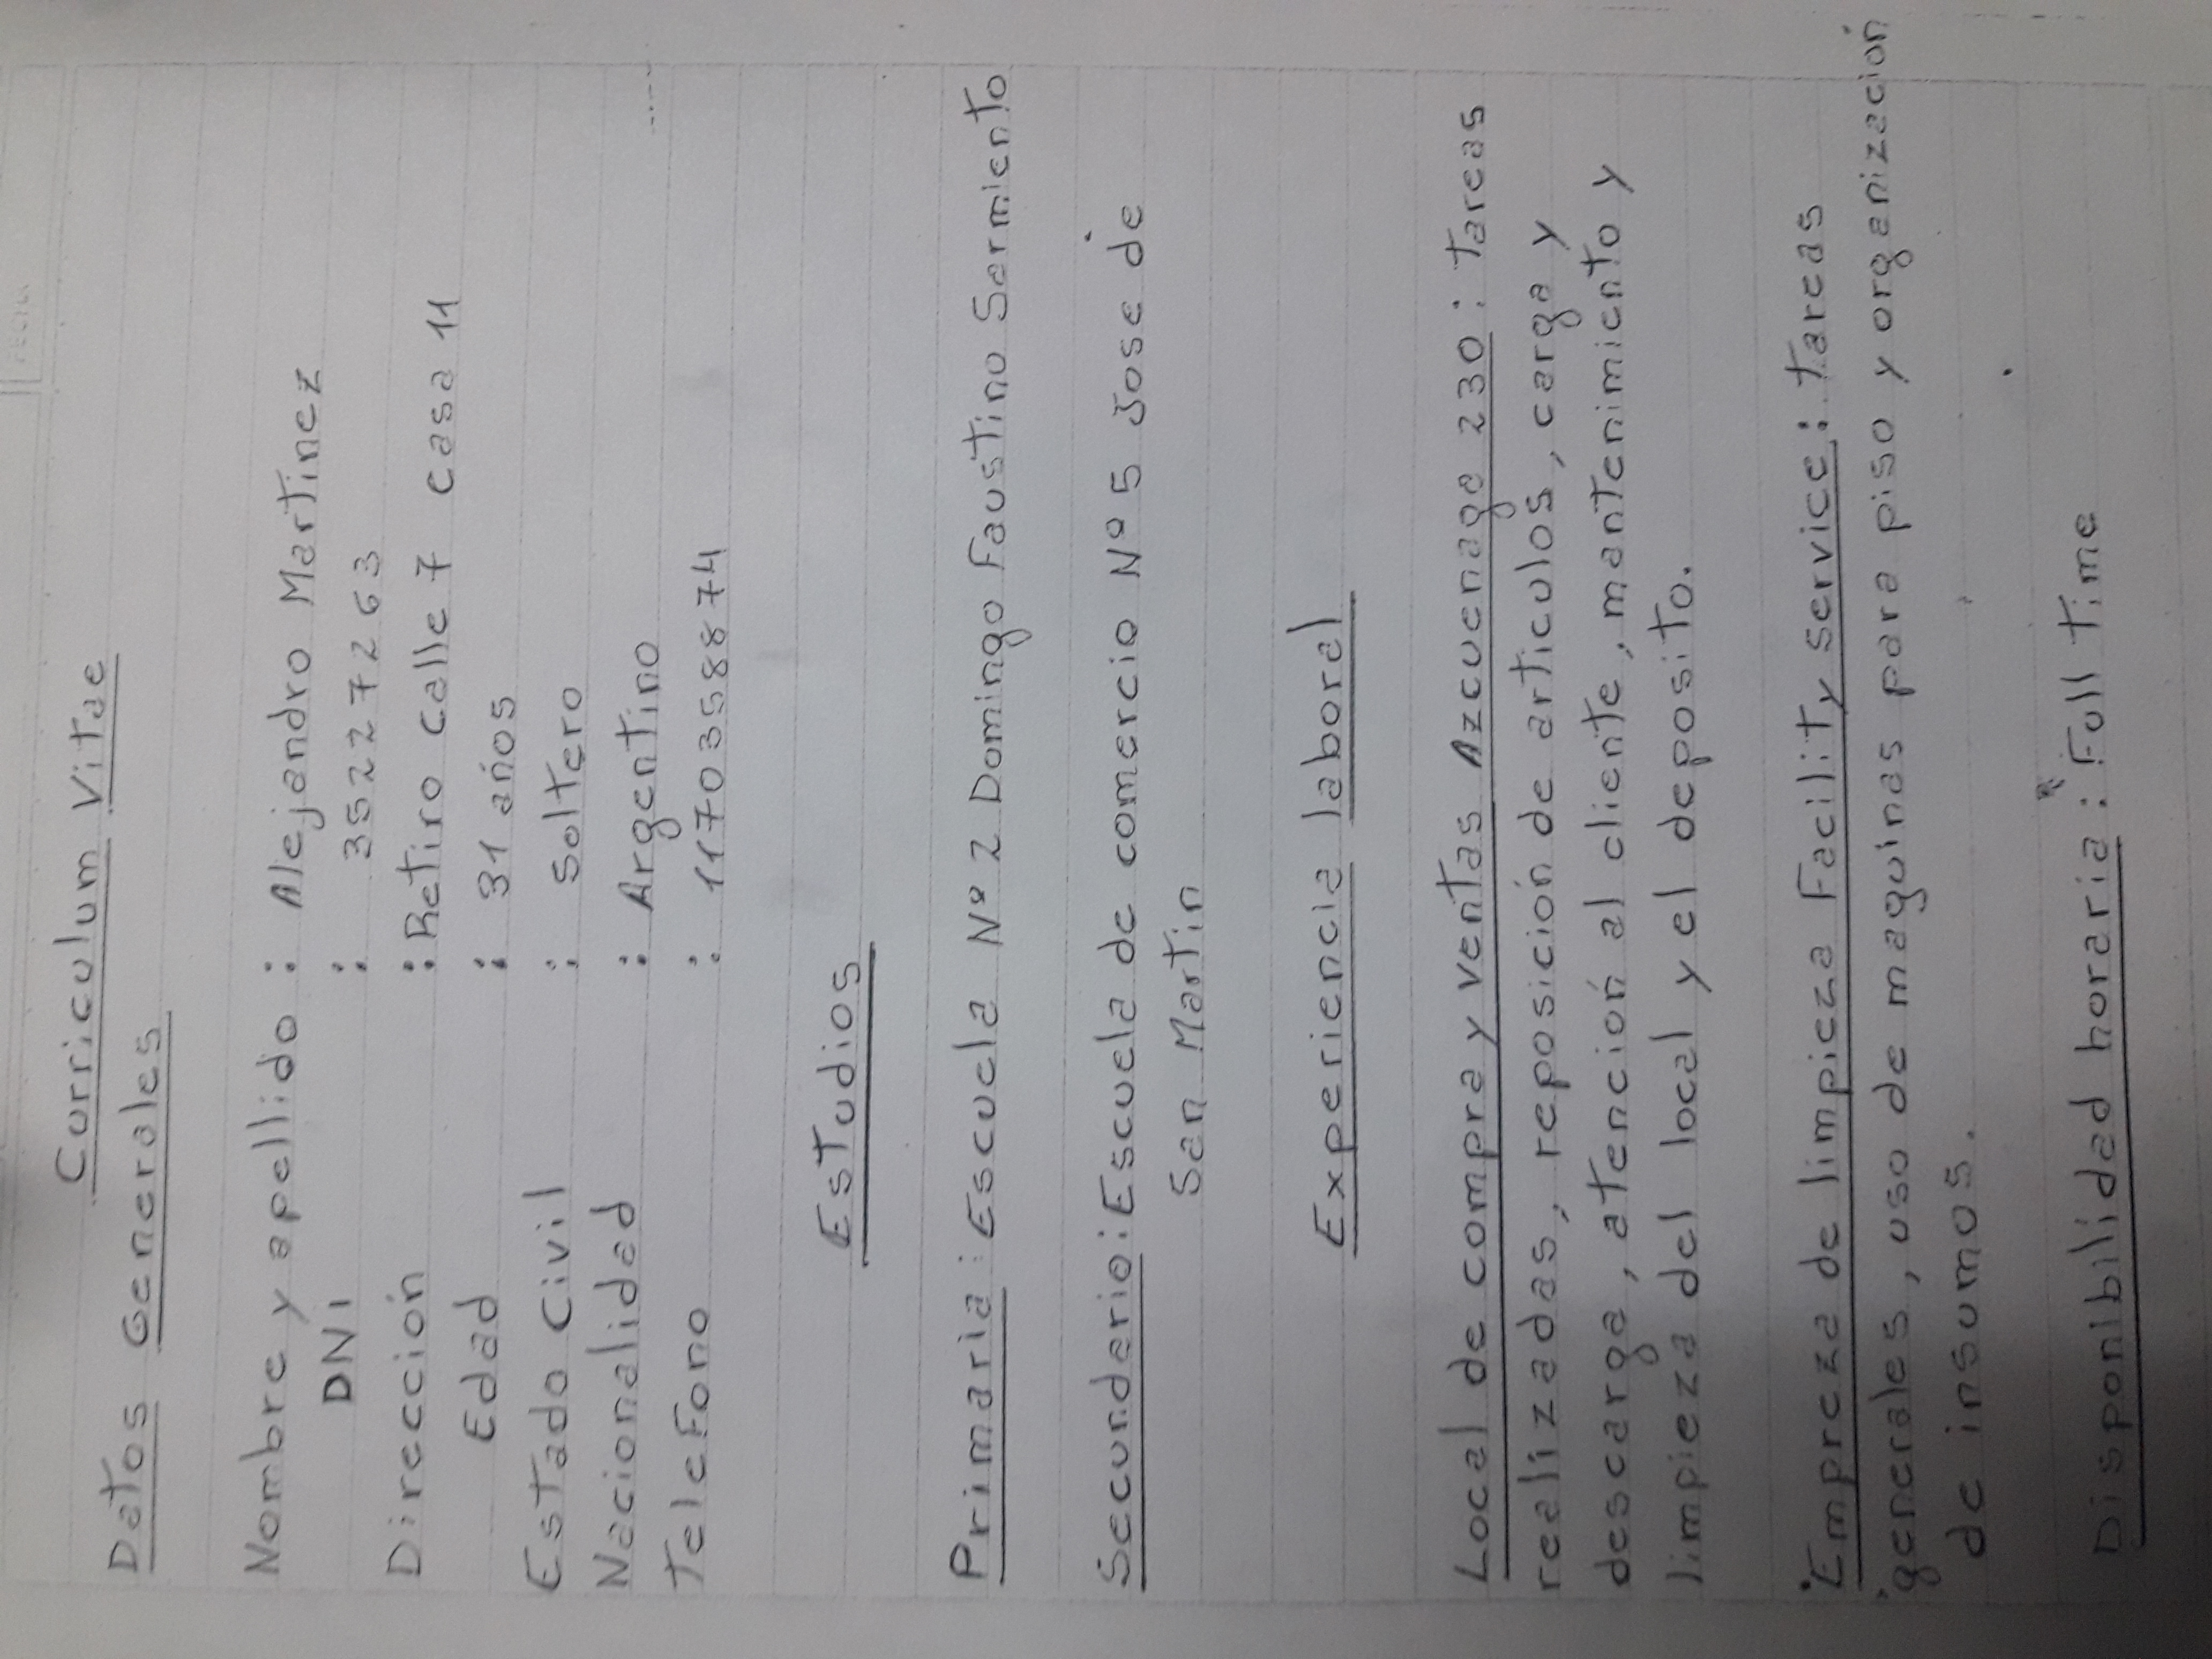 Curriculum Vitae
Datos Generales
Nombre y apellido : Alejandro Martinez
DNI : 35227263
Dirección : Retiro calle 7 casa 11
Edad : 31 años
Estado Civil : Soltero
Nacionalidad : Argentino
Telefono : 1170358874
Estudios
Primaria : Escuela Nº 2 Domingo Faustino Sarmiento
Secundario : Escuela de comercio Nº 5 Jose de
San Martin
Experiencia laboral
Local de compra y ventas Azcuenaga 230 : tareas
realizadas, reposición de articulos, carga y
descarga, atención al cliente, mantenimiento y
limpieza del local y el deposito.
Empreza de limpieza Facility service : tareas
generales, uso de maquinas para piso y organización
de insumos.
Disponibilidad horaria : Full Time